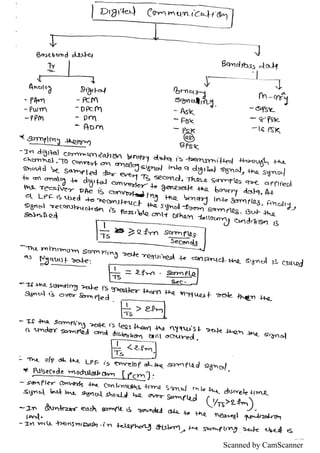 Digital Communication
Baseband data
Bandpass data
Analog
Digital
Binary signaling.
M-ary
- PAM
- PWM
- PPM
- PCM
- DPCM
- DM
- ADM
- ASK
- FSK
- PSK
(or)
BPSK
- QPSK
- 8 PSK
- 16 PSK
* Sampling theorem
- In digital communication binary data is transmitted through the
channel. To convert an analog signal into a digital signal, the signal
should be sampled for every Ts second, these samples are applied
to an analog to digital converter to generate the binary data. At
the receiver DAC is converting the binary into samples, finally,
a LPF is used to reconstruct the signal from samples. But the
signal reconstruction is possible only when following condition is
satisfied
1/Ts ≥ 2fm samples/seconds
- The minimum sampling rate required to construct the signal is called
as Nyquist rate:
1/Ts = 2fm. Sample/Sec.
- If the sampling rate is greater than the nyquist rate then the
signal is over sampled.
1/Ts > 2fm
- If the sampling rate is less than the nyquist rate then the signal
is under sampled and distortion will occured.
1/Ts < 2fm
- The o/p of the LPF is envelop of the sampled signal.
* Pulsecode modulation [PCM]:
- Sampler converts the continuous time signal into the discrete time
signal but the signal should be over sampled (1/Ts > 2fm)
- In Quantizer each sample is rounded off to the nearest quantization
level.
- In voice transmission in telephony system, the sampling rate used is
Scanned by CamScanner